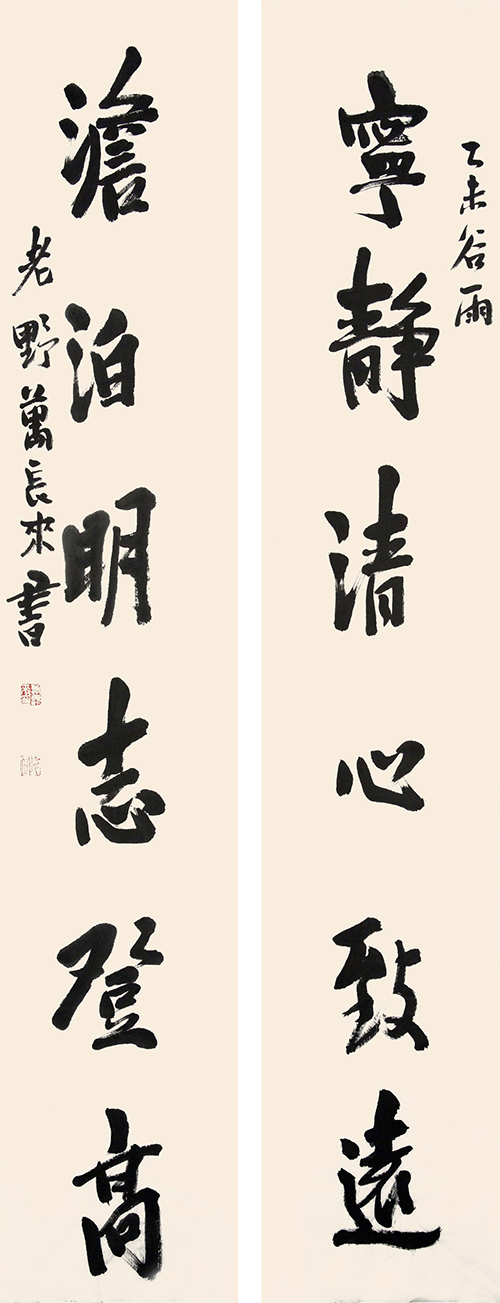 乙未谷雨
寧靜清心致遠
澹泊明志登高
老野萬長來書